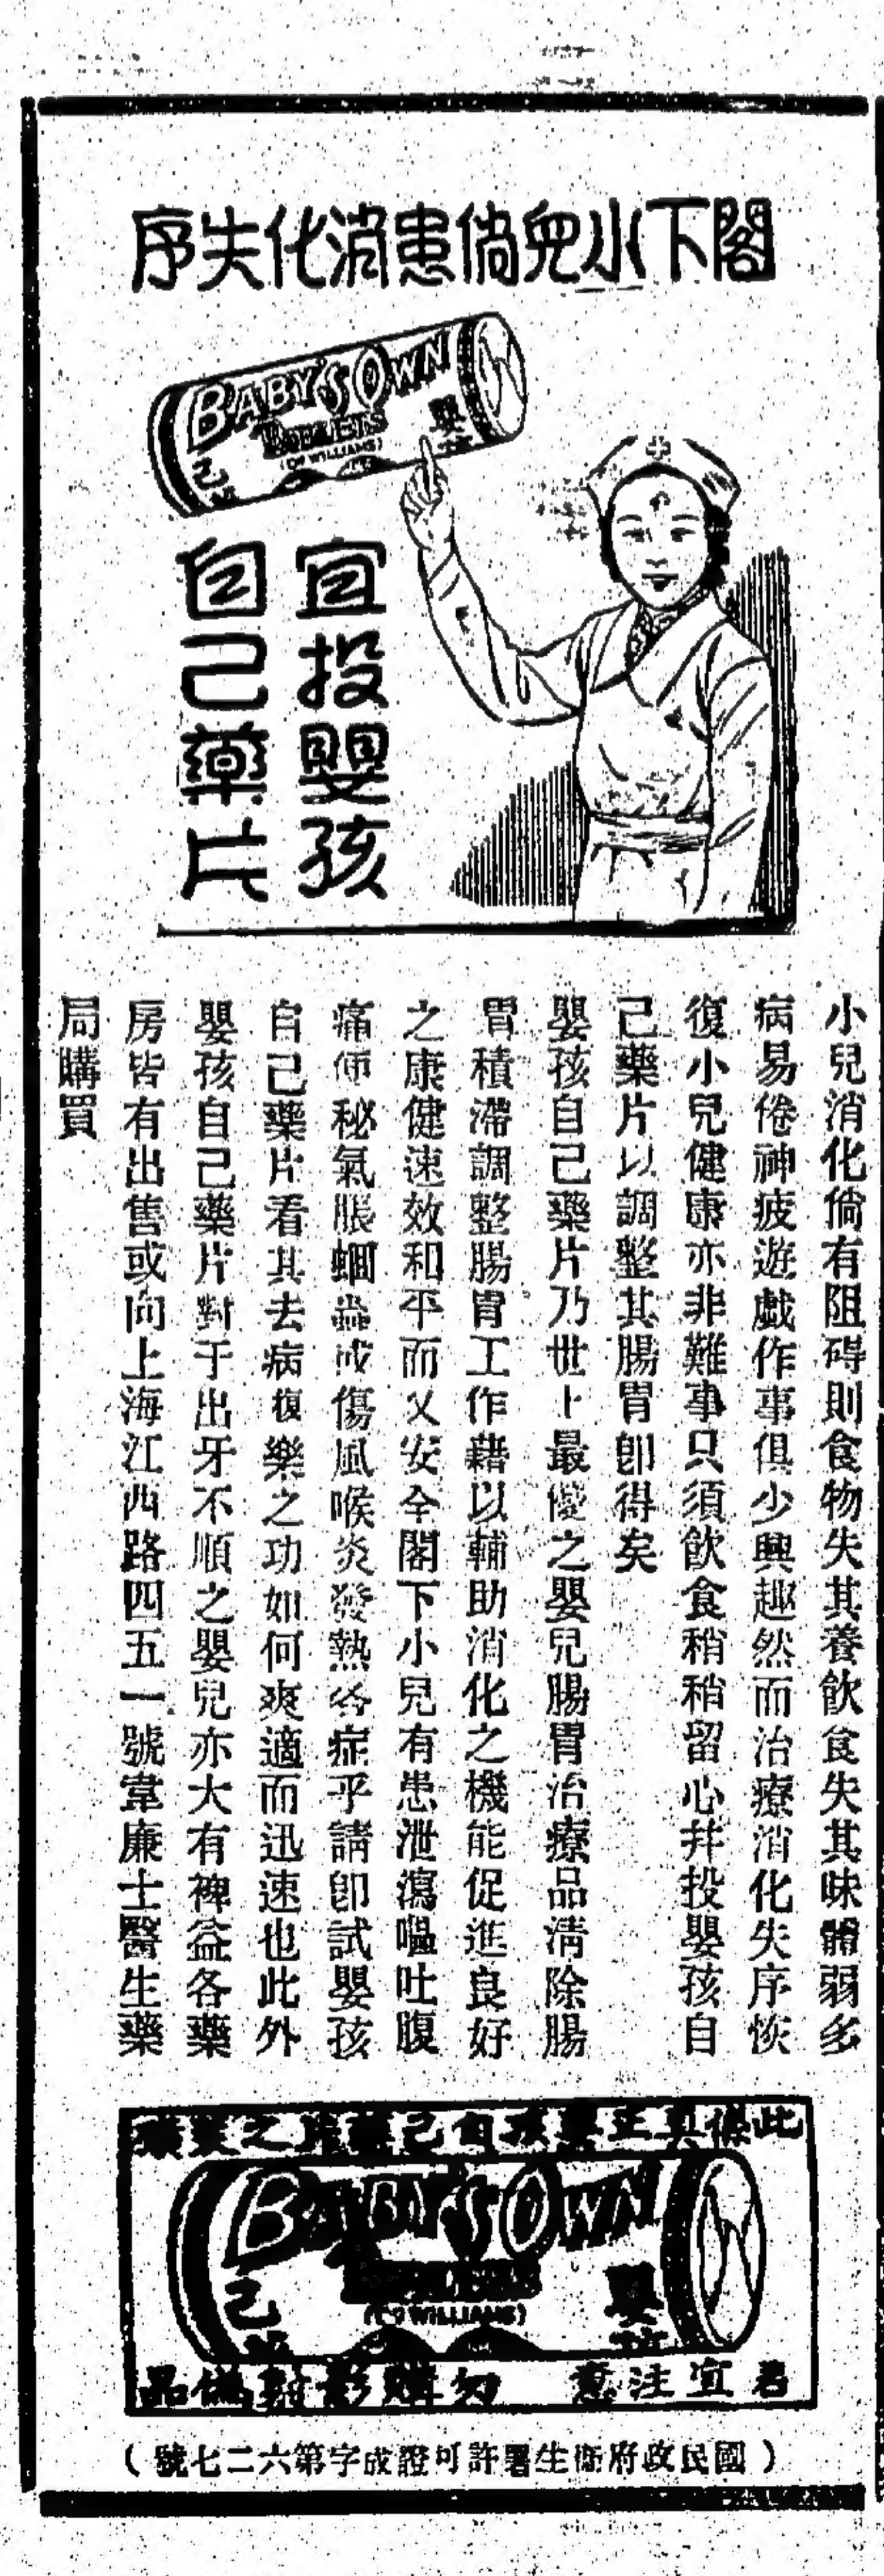 閣下小兒倘患消化失序
BABY'S OWN
TABLETS
(DR WILLIAMS)
嬰
己
宜投嬰孩
自己藥片
小兒消化倘有阻碍則食物失其養飲食失其味體弱多
病易倦神疲遊戲作事俱少興趣然而治療消化失序恢
復小兒健康亦非難事只須飲食稍稍留心幷投嬰孩自
己藥片以調整其腸胃卽得矣
嬰孩自己藥片乃世上最優之嬰兒腸胃治療品淸除腸
胃積滯調整腸胃工作藉以輔助消化之機能促進良好
之康健速效和平而又安全閣下小兒有患泄瀉嘔吐腹
痛便秘氣脹蛔蟲或傷風喉炎發熱各症乎請卽試嬰孩
自己藥片看其去病復樂之功如何爽適而迅速也此外
嬰孩自己藥片對于出牙不順之嬰兒亦大有裨益各藥
房皆有出售或向上海江西路四五一號韋廉士醫生藥
局購買
此係眞正嬰孩自己藥片之裝璜
BABY'S OWN
TABLETS
(DR WILLIAMS)
嬰
己
君宜注意 勿購影射僞品
(國民政府衛生署許可證成字第六二七號)